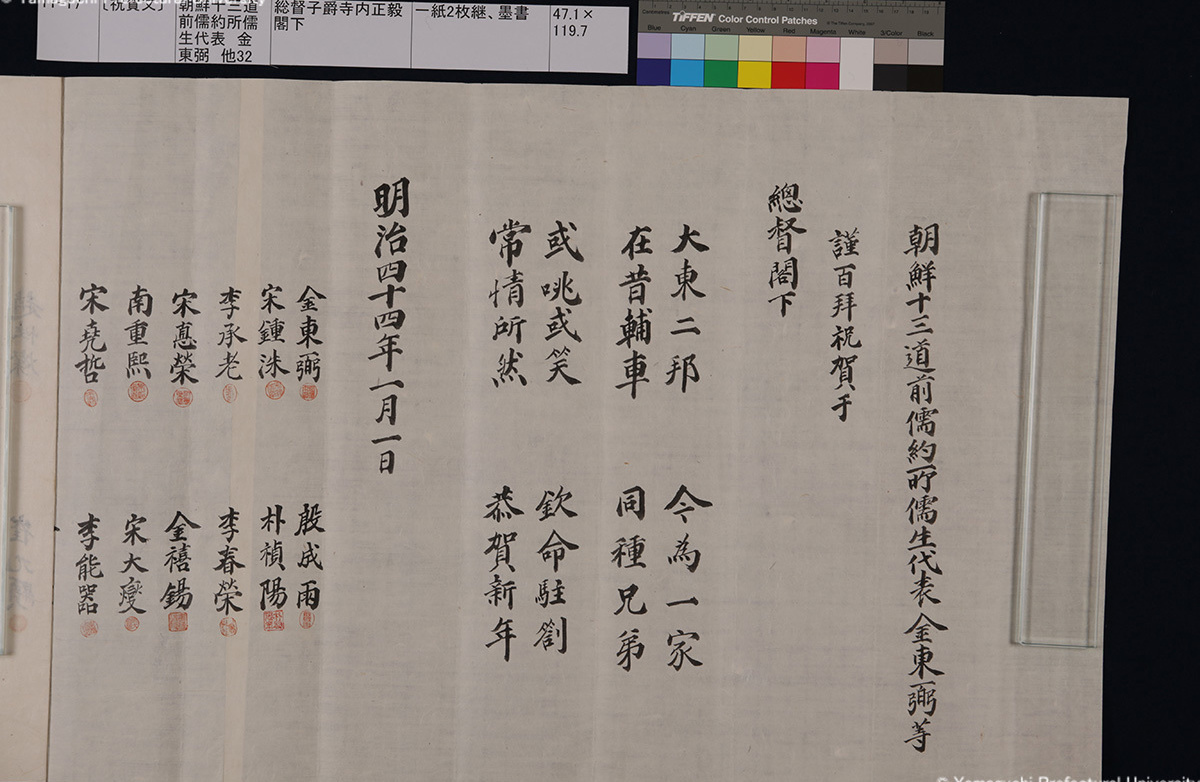 朝鮮十三道
前儒約所儒
生代表 金
東弼 他32
総督子爵寺内正毅
閣下
一紙2枚継、墨書
47.1×
119.7
TIFFEN Color Control Patches
Centimetres
Blue Cyan Green Yellow Red Magenta White 3/Color Black
朝鮮十三道前儒約所儒生代表金東弼等
謹百拜祝賀于
總督閣下
大東二邦 今為一家
在昔輔車 同種兄弟
或咷或笑 欽命駐劄
常情所然 恭賀新年
明治四十四年一月一日
金東弼 殷成雨
宋鍾洙 朴禎陽
李承老 李春榮
宋憙榮 金禧錫
南重熙 宋大燮
宋堯哲 李能器
© Yamaguchi Prefectural University